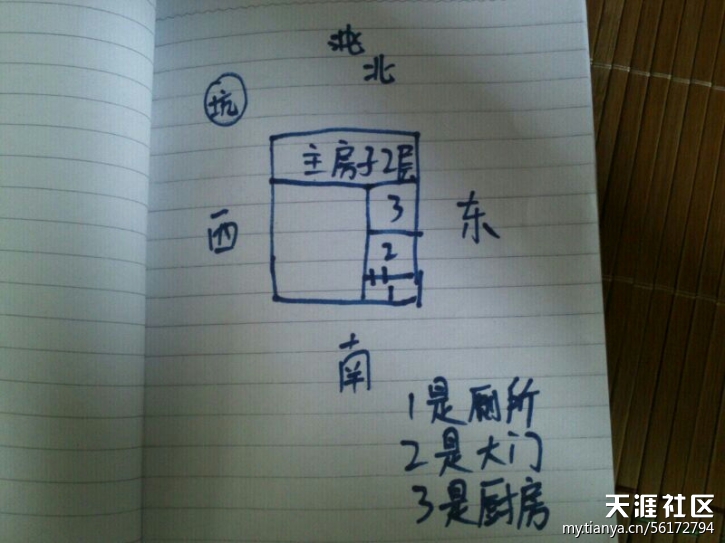 北
坑
主房子2层
3
西
东
2
1
南
1是厕所
2是大门
3是厨房
天涯社区
my.tianya.cn/56172794